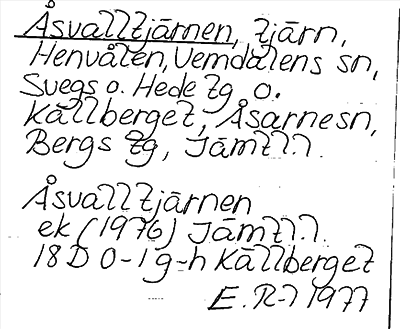 Åsvalltjärnen, tjärn,
Henvålen, Vemdalens sn,
Svegs o. Hede tg o.
Källberget, Åsarne sn,
Bergs tg, Jämtl.l.
Åsvalltjärnen
ek (1976) Jämtl.l.
18D 0-1 g-h Källberget
E.R-l 1977